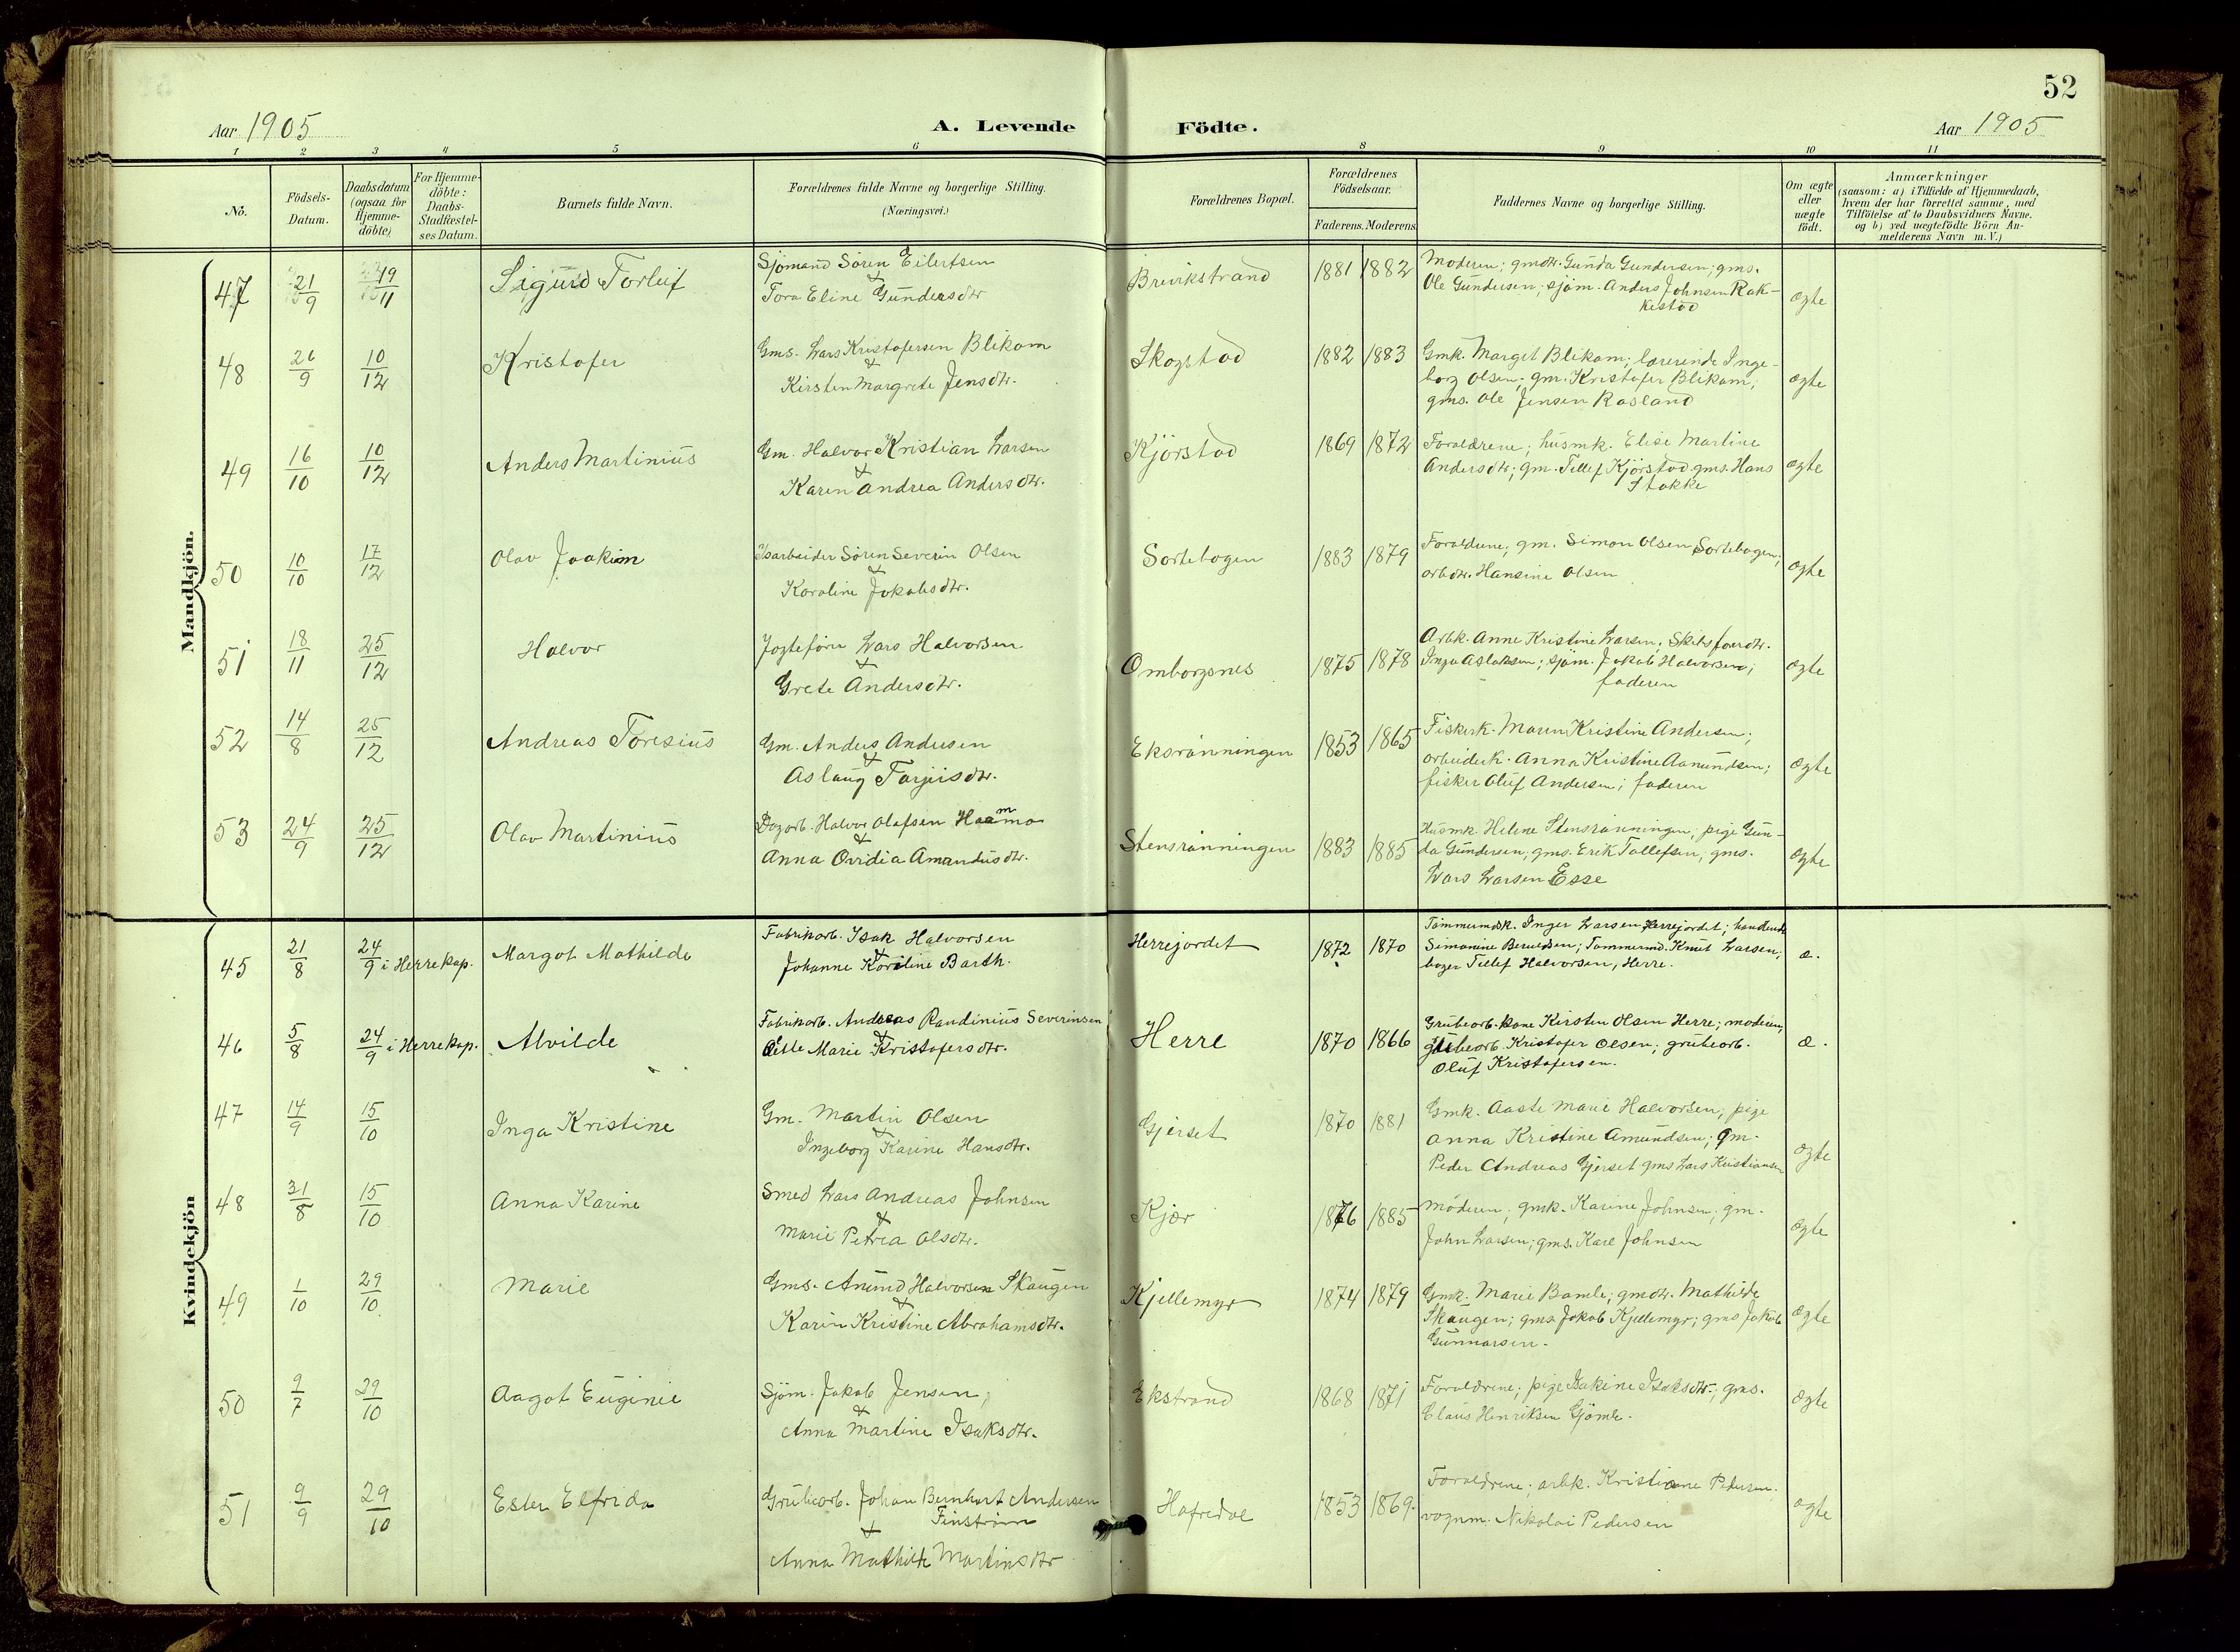 52
Aar 1905
A. Levende Födte.
Aar 1905
1 2 3 4 5 6 8 9 10 11
No.
Födsels-
Datum.
Daabsdatum
(ogsaa for
Hjemme-
döbte)
For Hjemme-
döbte:
Daabs-
Stadfæstel-
ses Datum.
Barnets fulde Navn.
Forældrenes fulde Navne og borgerlige Stilling.
(Næringsvei.)
Forældrenes Bopæl.
Forældrenes
Födselsaar.
Faderens. Moderens.
Faddernes Navne og borgerlige Stilling.
Om ægte
eller
uægte
födt.
Anmærkninger
(saasom: a) i Tilfælde af Hjemmedaab,
hvem der har forrettet samme, med
Tilföielse af to Daabsvidners Navne.
og b) ved uægtefödte Börn An-
melderens Navn m.V.)
Mandkjön.
47 21/9 19/11 Sigurd Torleif
Sjömand Sören Eilertsen
&
Tora Eline Gundersdtr
Brevikstrand 1881 1882
Moderen; gmdtr. Gunda Gundersen; gms.
Ole Gundersen; sjöm. Anders Johnsen Rak-
kestad
ægte
48 26/9 10/12 Kristofer
Gms. Lars Kristofersen Blikom
&
Kirsten Margrete Jensdtr.
Skogstad 1882 1883
Gmk. Margit Blikom; lærerinde Inge-
borg Olsen; gm. Kristofer Blikom;
gms. Ole Jensen Rosland
ægte
49 16/10 10/12 Anders Martinius
Gm. Halvor Kristian Larsen
&
Karen Andrea Andersdtr.
Kjörstad 1869 1872
Forældrene; husmk. Elise Martine
Andersdtr; gm. Tellef Kjörstad gms. Hans
Stokke
ægte
50 10/10 17/12 Olav Joakim
Isarbeider Sören Severin Olsen
&
Karoline Jakobsdtr.
Sortebogen 1883 1879
Forældrene; gm. Simon Olsen Sortebogen;
arbdtr. Hansine Olsen
ægte
51 18/11 25/12 Halvor
Jagteförer Lars Halvorsen
&
Grete Andersdtr.
Omborgsnes 1875 1878
Arbk. Anne Kristine Larsen; Skibsförerdtr.
Inga Aslaksen; sjöm. Jakob Halvorsen;
faderen
ægte
52 14/8 25/12 Andreas Toresius
Gm. Anders Andersen
&
Aslaug Torjusdtr.
Eksrönningen 1853 1865
Fiskerk. Maren Kristine Andersen;
arbeiderk. Anna Kristine Aamundsen;
fisker Oluf Andersen; faderen
ægte
53 24/9 25/12 Olav Martinius
Dagarb. Halvor Olafsen
&
Anna Ovidia Amandusdtr.
Stensrönningen 1883 1885
Husmk. Helene Stensrönningen; pige Gun-
da Gundersen; gms. Erik Tollefsen; gms.
Lars Larsen Esse
ægte
Kvindekjön
45 21/8 24/9 i Herre kap. Margot Mathilde
Fabrikarb. Isak Halvorsen
&
Johanne Karoline Barth.
Herrejordet 1872 1870
Tömmermdsk. Inger Larsen Herrejordet; handlende
Simonine Berntsen; Tömmermd. Knut Larsen;
bager Tellef Halvorsen, Herre.
æ.
46 5/8 24/9 i Herre kap. Alvilde
Fabrikarb. Andreas Randinius Severinsen
&
Marie Kristofersdtr.
Herre 1870 1866
Grubearb. kone Kirsten Olsen Herre; moderen,
grubearb. Kristofer Olsen; grubearb.
Oluf Kristofersen.
æ.
47 14/9 15/10 Inga Kristine
Gm. Martin Olsen
&
Ingeborg Karine Hansdtr.
Gjerset 1870 1881
Gmk. Aaste Marie Halvorsen; pige
Anna Kristine Amundsen; gm.
Peder Andreas Gjerset gms Lars Kristiansen
ægte
48 31/8 15/10 Anna Karine
Smed Lars Andreas Johnsen
&
Marie Petrea Olsdtr.
Kjær 1876 1885
Moderen; gmk. Karine Johnsen; gm.
John Larsen; gms. Karl Johnsen
ægte
49 1/10 29/10 Marie
Gms. Anund Halvorsen Skaugen
&
Karin Kristine Abrahamsdtr.
Kjellemyr 1874 1879
Gmk. Marie Bamle; gmdtr. Mathilde
Skaugen; gms Jakob Kjellemyr; gms Jakob
Gunnarsen.
ægte
50 9/7 29/10 Aagot Euginie
Sjöm. Jakob Jensen,
&
Anna Martine Isaksdtr.
Ekstrand 1868 1871
Forældrene; pige Isakine Isaksdtr; gms.
Claus Henriksen Gjömle.
ægte
51 9/9 29/10 Ester Elfrida
Grubearb. Johan Bernhart Andersen
Finström
&
Anna Mathilde Martinsdtr
Hafredal 1853 1869.
Forældrene; arbk. Kristiane Pedersen.
vognm. Nikolai Pedersen
ægte